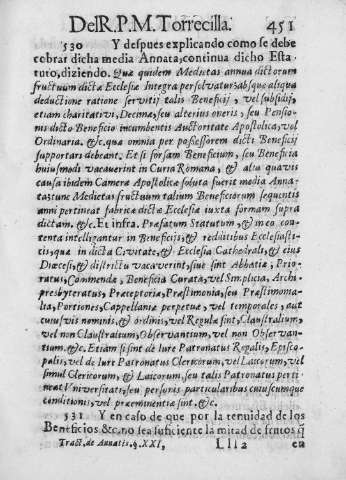 Del R. P. M. Torrecilla. 451
530 Y despues explicando como se debe
cobrar dicha media Annata, continua dicho Esta
tuto, diziendo. Quæ quidem Medietas annua dictorum
fructuum dictæ Ecclesiæ Integra persolvatur: absque aliqua
deductione ratione servitij talis Beneficij, vel subsidij,
etiam charitativi, Decimæ, seu alterius oneris, seu Pensio-
nis dicto Beneficio incumbentis Auctoritate Apostolica, vel
Ordinaria. &c. quæ omnia per possessorem dicti Beneficij
supportari debeant. Et si forsam Beneficium, seu Beneficia
huiusmodi vacaverint in Curia Romana, & alia quavis
causa ibidem Cameræ Apostolicæ soluta fuerit media Anna-
ta: tunc Medietas fructuum talium Beneficiorum sequentis
anni pertineat fabricæ dictæ Ecclesiæ iuxta formam supra
dictam, &c. Et infra. Præfatum Statutum, & in eo con-
tenta intelligantur in Beneficijs, & redditibus Ecclesiasti-
cis, quæ in dicta Civitate, & Ecclesia Cathedrali, & eius
Diœcesi, & districtu vacaverint, sive sint Abbatiæ, Prio-
ratus, Commendæ, Beneficia Curata, vel Simplicia, Archi-
presbyteratus, Præceptoria, Præstimonia, seu Præstimonia-
lia, Portiones, Cappellaniæ perpetuæ, vel temporales, aut
cuiusvis nominis, & ordinis, vel Regulæ sint, Claustralium,
vel non Claustralium, Observantium, vel non Observan-
tium, &c. Etiam si sint de Iure Patronatus Regalis, Episco-
palis, vel de Iure Patronatus Clericorum, vel Laicorum, vel
simul Clericorum, & Laicorum, seu talis Patronatus perti-
neat Vniversitati, seu personis particularibus cuiuscumque
conditionis, vel præeminentiæ sint. &c.
531 Y en caso de que por la tenuidad de los
Beneficios &c. no sea suficiente la mitad de frutos q̃
Tract. de Annatis, q. XXI, Lll2 en